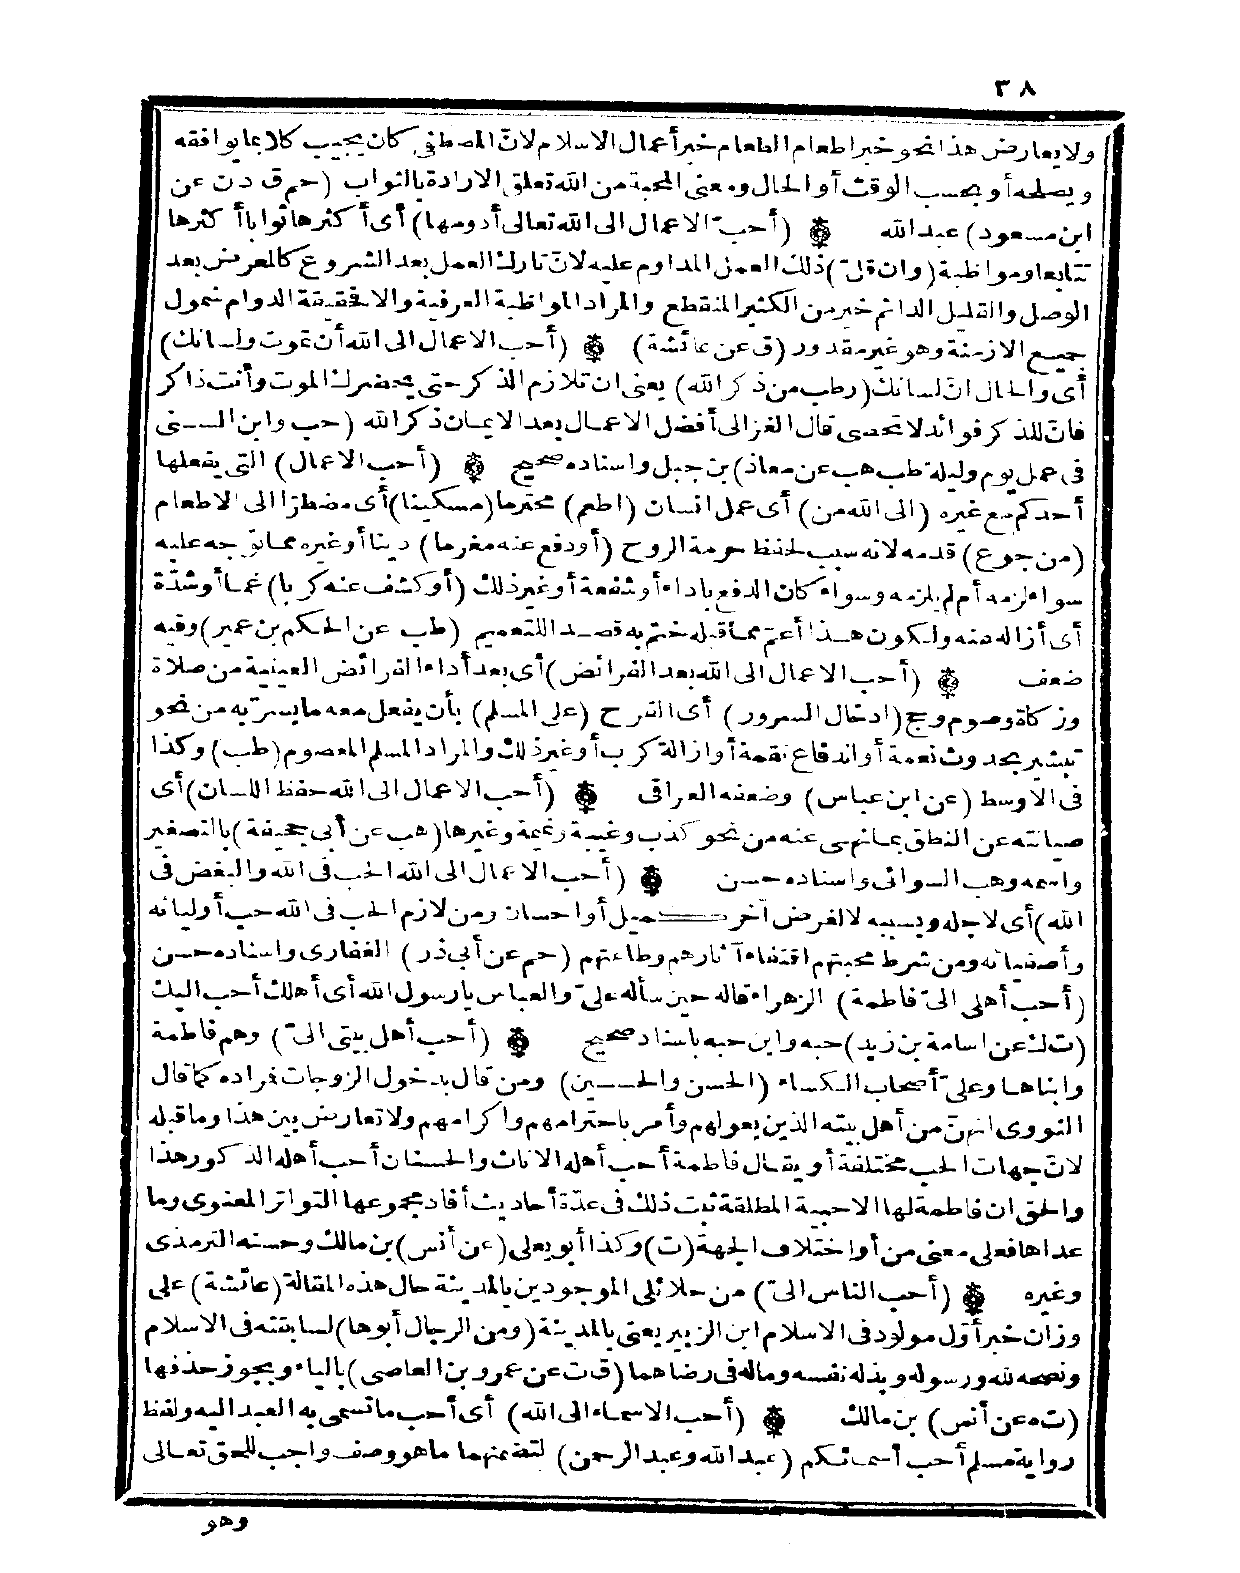 ٣٨
ولا يعارض هذا نحو خبر اطعام الطعام خير أعمال الاسلام لانّ المصطفى كان يجيب كلا بما يوافقه
ويصلحه أو بحسب الوقت أو الحال ومعنى المحبة من الله تعلق الارادة بالثواب (حم ق د ن عن
ابن مسعود) عبد الله ۞ (أحبّ الاعمال الى الله تعالى أدومها) أى أكثرها ثوابا أكثرها
تتابعا ومواظبة (وان قلّ) ذلك العمل المداوم عليه لانّ تارك العمل بعد الشروع كالمعرض بعد
الوصل والقليل الدائم خير من الكثير المنقطع والمراد المواظبة العرفية والا فحقيقة الدوام شمول
جميع الازمنة وهو غير مقدور (ق عن عائشة) ۞ (أحب الاعمال الى الله أن تموت ولسانك)
أى والحال انّ لسانك (رطب من ذكر الله) يعنى ان تلازم الذكر حتى يحضرك الموت وأنت ذاكر
فانّ للذكر فوائد لا تحصى قال الغزالى أفضل الاعمال بعد الايمان ذكر الله (حب وابن السنى
فى عمل يوم وليلة طب هب عن معاذ) بن جبل واسناده صحيح ۞ (أحب الاعمال) التى يفعلها
أحدكم مع غيره (الى الله من) أى عمل انسان (اطعم) محترما (مسكينا) أى مضطرّا الى الاطعام
(من جوع) قدمه لانه سبب لحفظ حرمة الروح (أو دفع عنه مغرما) دينا أو غيره مما توجه عليه
سواء لزمه أم لم يلزمه وسواء كان الدفع باداء أو شفعة أو غير ذلك (أو كشف عنه كربا) غما أو شدّة
أى أزاله عنه ولكون هذا أعمّ مما قبله ختم به قصدا للتعميم (طب عن الحكم بن عمير) وفيه
ضعف ۞ (أحب الاعمال الى الله بعد الفرائض) أى بعد أداء الفرائض العينية من صلاة
وزكاة وصوم وحج (ادخال السرور) أى الفرح (على المسلم) بأن يفعل معه ما يسرّ به من نحو
تبشير بحدوث نعمة أو اندفاع نقمة أو ازالة كرب أو غير ذلك والمراد المسلم المعصوم (طب) وكذا
فى الاوسط (عن ابن عباس) وضعفه العراقى ۞ (أحب الاعمال الى الله حفظ اللسان) أى
صيانته عن النطق بما نهى عنه من نحو كذب وغيبة ونميمة وغيرها (هب عن أبى جحيفة) بالتصغير
واسمه وهب السوائى واسناده حسن ۞ (أحب الاعمال الى الله الحب فى الله والبغض فى
الله) أى لاجله وبسببه لا لغرض آخر كميل أو احسان ومن لازم الحب فى الله حب أوليائه
وأصفيائه ومن شرط محبتهم اقتفاء آثارهم وطاعتهم (حم عن أبى ذر) الغفارى واسناده حسن
(أحب أهلى الىّ فاطمة) الزهراء قاله حين سأله علىّ والعباس يا رسول الله أى أهلك أحب اليك
(ت ك عن اسامة بن زيد) حبه وابن حبه باسناد صحيح ۞ (أحب أهل بيتى الىّ) وهم فاطمة
وابناها وعلىّ أصحاب الكساء (الحسن والحسين) ومن قال بدخول الزوجات فراده كما قال
النووى انهنّ من أهل بيته الذين يعولهم وأمر باحترامهم واكرامهم ولا تعارض بين هذا وما قبله
لانّ جهات الحب مختلفة أو يقال فاطمة أحب أهله الاناث والحسنان أحب أهله الذكور هذا
والحق ان فاطمة لها الاحبية المطلقة ثبت ذلك فى عدّة أحاديث أفاد مجموعها التواتر المعنوى وما
عداها فعلى معنى من أو اختلاف الجهة (ت) وكذا أبو يعلى (عن أنس) بن مالك وحسنه الترمذى
وغيره ۞ (أحب الناس الىّ) من حلائلى الموجودين بالمدينة حال هذه المقالة (عائشة) على
وزان خبر أوّل مولود فى الاسلام ابن الزبير يعنى بالمدينة (ومن الرجال أبوها) لسابقته فى الاسلام
ونصحه لله ورسوله وبذله نفسه وماله فى رضاهما (ق ت عن عمرو بن العاصى) بالياء ويجوز حذفها
(ت ه عن أنس) بن مالك ۞ (أحب الاسماء الى الله) أى أحب ما تسمى به العبد اليه ولفظ
رواية مسلم أحب أسمائكم (عبد الله وعبد الرحمن) لتضمنهما ما هو وصف واجب للحق تعالى
وهو